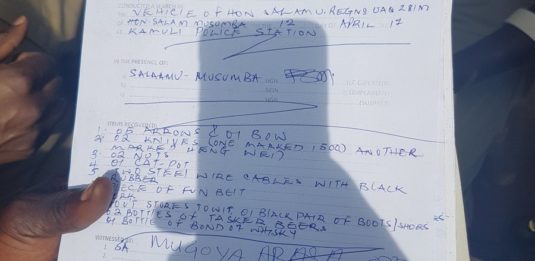 VEHICLE OF HON SALAMU. REGNO UAQ 281M
HON SALAM MUSUMBA 12 APRIL 17
KAMULI POLICE STATION
IN THE PRESENCE OF:
SALAAMU - MUSUMBA
ITEMS RECOVERED
1. 06 ARROWS & 01 BOW
2. 02 KNIVES (ONE MARKED 1500) ANOTHER
MARKED HENG WEI)
3. 02 NUTS
4. 01 CAT-POT
5. STEEL WIRE CABLES WITH BLACK
RUBBER
PIECE OF FUN BELT
STORES TOWIT 01 BLACK PAIR OF BOOTS/SHOES
02 BOTTLES OF TASKER BEERS
01 BOTTLE OF BOND 07 WHISKY
WITNESSED BY
1. MUGOYA